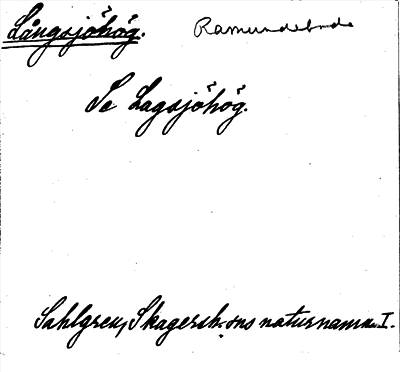 Långsjöhög. Ramundeboda
Se Lagsjöhög.
Sahlgren, Skagersh:ons naturnamn I.